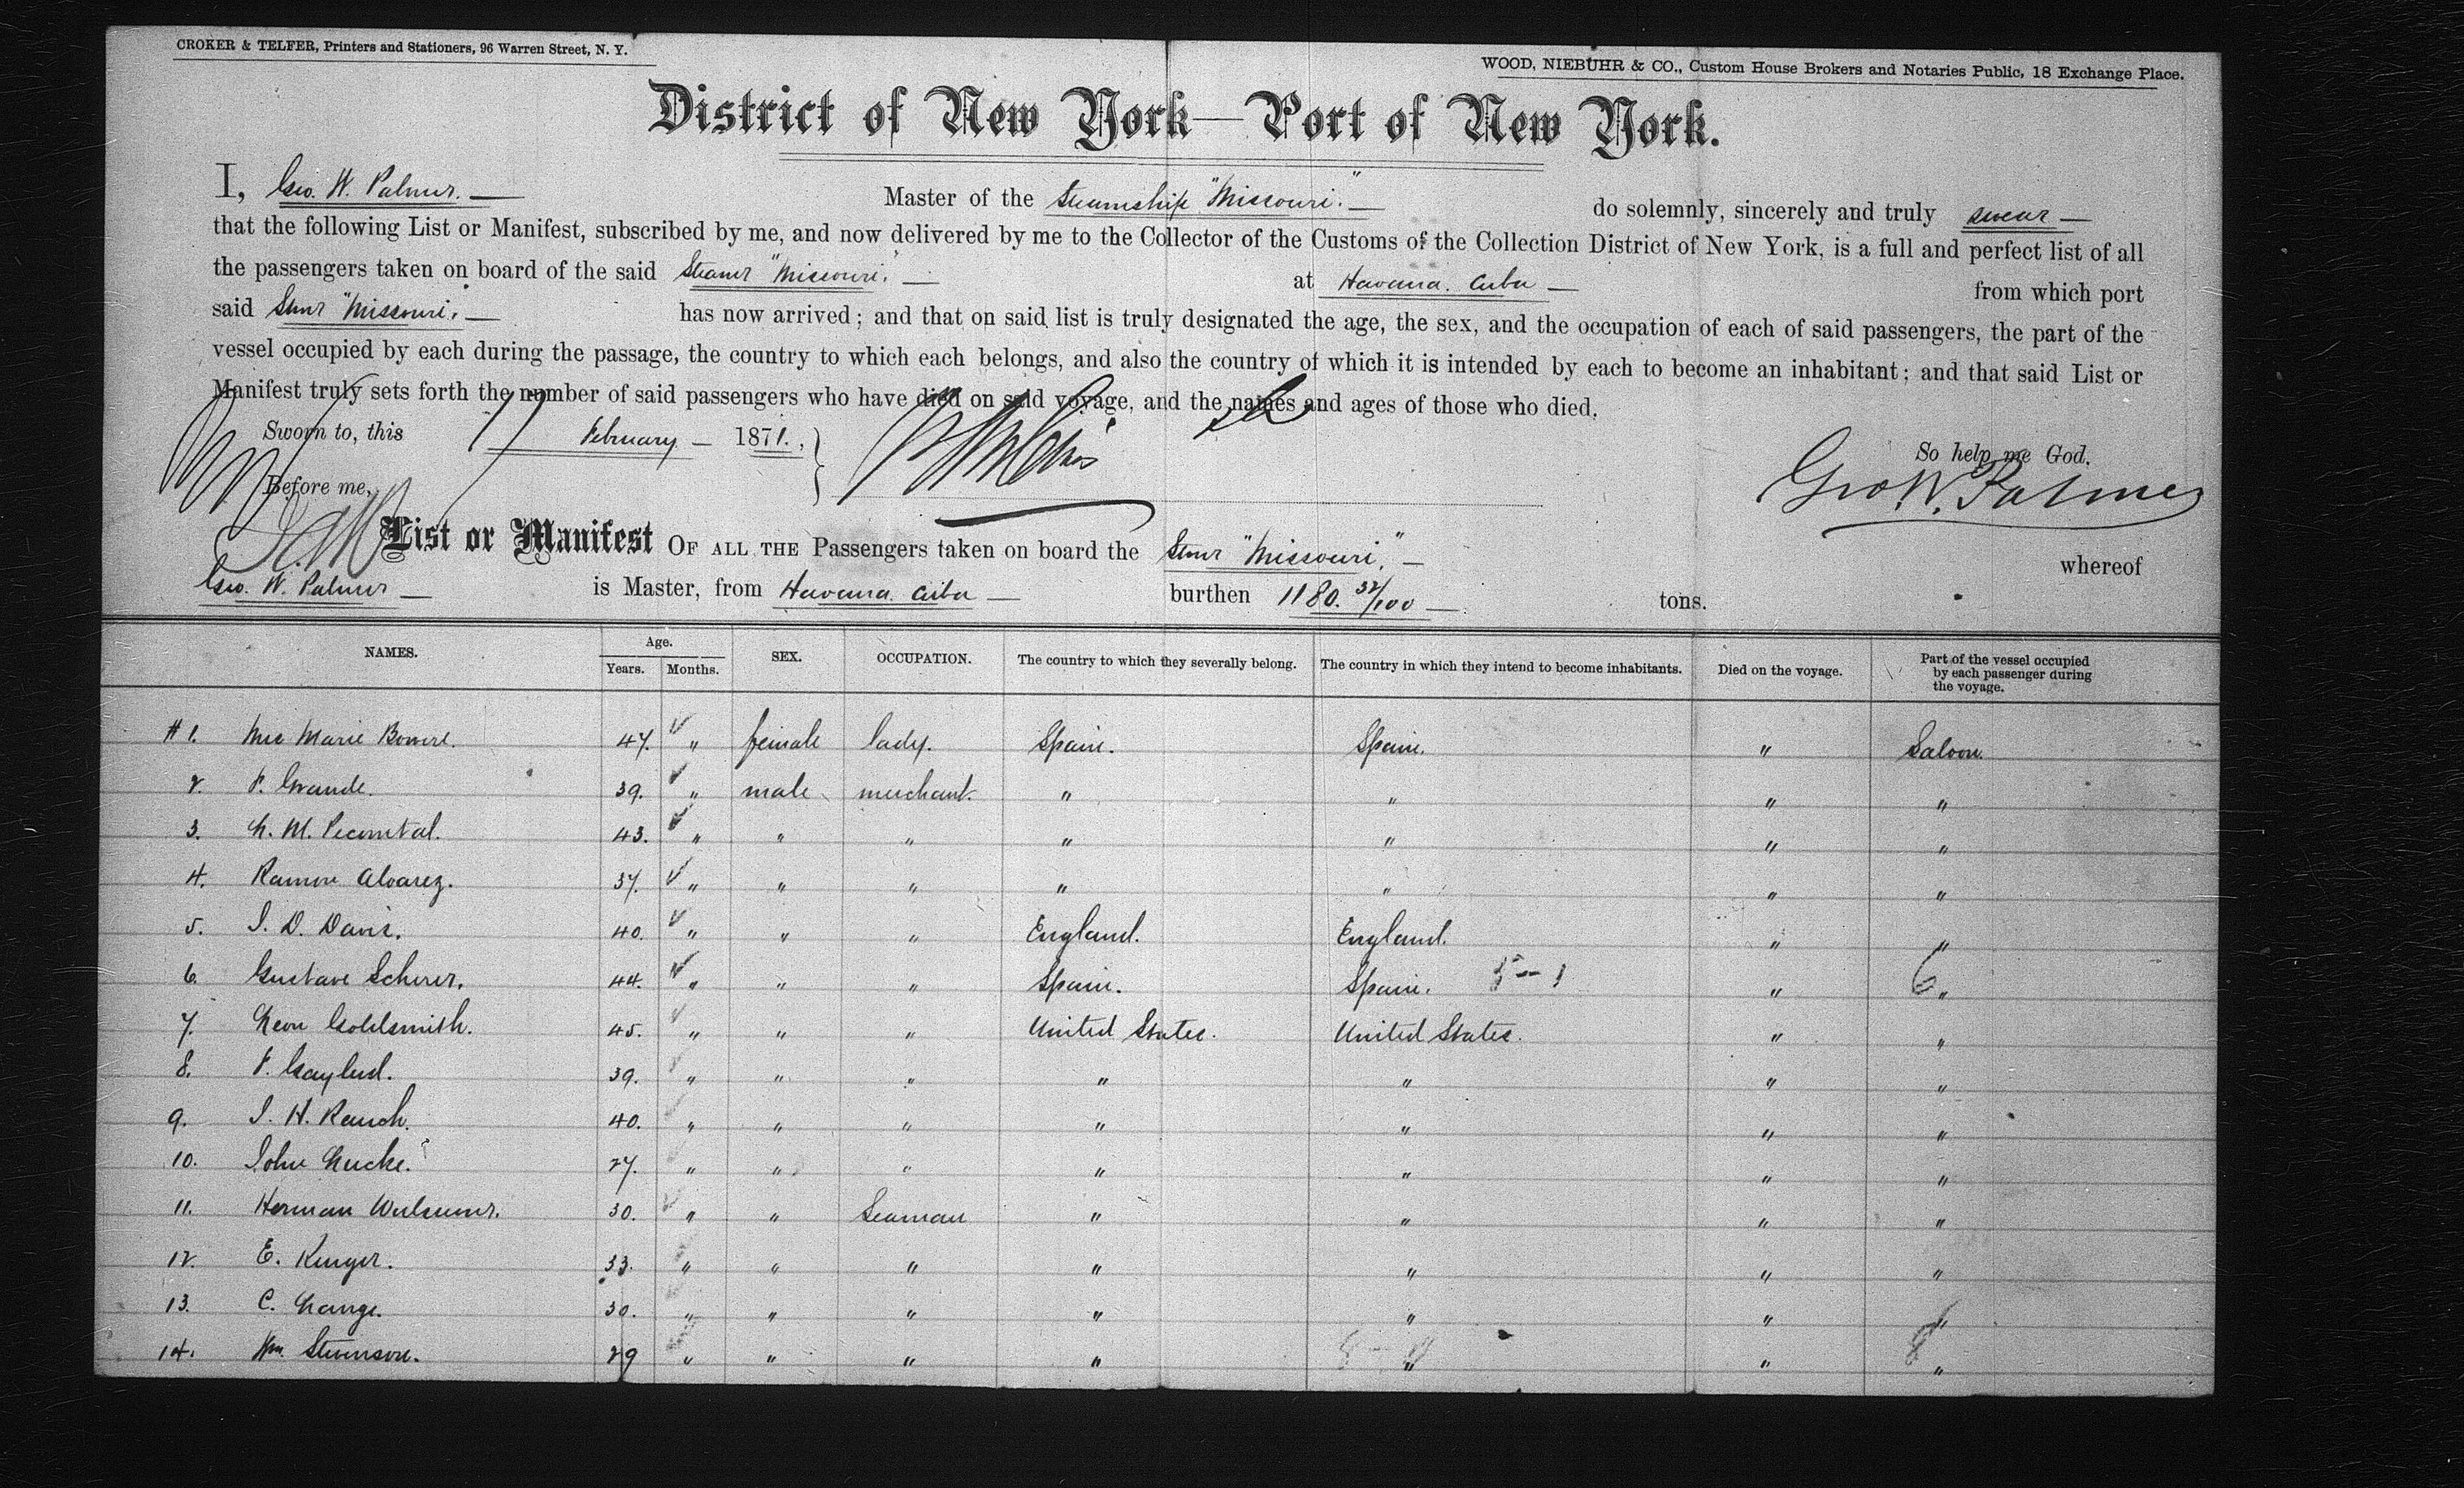 CROKER & TELFER, Printers and Stationers, 96 Warren Street, N. Y.
WOOD, NIEBUHR & CO., Custom House Brokers and Notaries Public, 18 Exchange Place.
District of New York—Port of New York.
I, Geo. W. Palmer. — Master of the Steamship "Missouri." — do solemnly, sincerely and truly swear —
that the following List or Manifest, subscribed by me, and now delivered by me to the Collector of the Customs of the Collection District of New York, is a full and perfect list of all
the passengers taken on board of the said Steamr "Missouri." — at Havana. Cuba — from which port
said Stmr "Missouri." — has now arrived; and that on said list is truly designated the age, the sex, and the occupation of each of said passengers, the part of the
vessel occupied by each during the passage, the country to which each belongs, and also the country of which it is intended by each to become an inhabitant; and that said List or
Manifest truly sets forth the number of said passengers who have died on said voyage, and the names and ages of those who died.
Sworn to, this 17 February — 1871.
So help me God.
Before me,
Geo. W. Palmer
List or Manifest OF ALL THE Passengers taken on board the Stmr "Missouri," — whereof
Geo. W. Palmer — is Master, from Havana. Cuba — burthen 1180. 32/100 — tons.
NAMES. Age. Years. Months. SEX. OCCUPATION. The country to which they severally belong. The country in which they intend to become inhabitants. Died on the voyage. Part of the vessel occupied by each passenger during the voyage.
# 1. Marie 47. " female lady. Spain. Spain. " Saloon.
2. F. Grande. 39. " male merchant. " " " "
3. 43. " " " " " " "
4. Ramon Alvarez. 37. " " " " " " "
5. J. D. Davis. 40. " " " England. England. " "
6. Gustave Scherer. 44. " " " Spain. Spain. 5 — 1 " 6 "
7. Leon Goldsmith. 45. " " " United States. United States. " "
8. F. 39. " " " " " " "
9. J. H. Rauch. 40. " " " " " " "
10. John Lucke. 27. " " " " " " "
11. Herman 30. " " Seaman " " " "
12. E. 33. " " " " " " "
13. C. Lange. 30. " " " " " " "
14. Wm. Stevenson. 29 " " " " " " 8 "